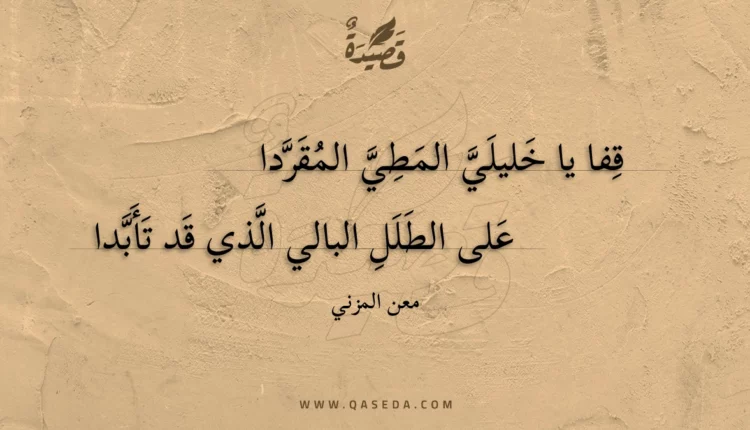 قَصِيدَةٌ
قِفا يا خَليلَيَّ المَطِيَّ المُقَرَّدا
عَلى الطَلَلِ البالي الَّذي قَد تَأَبَّدا
معن المزني
WWW.QASEDA.COM